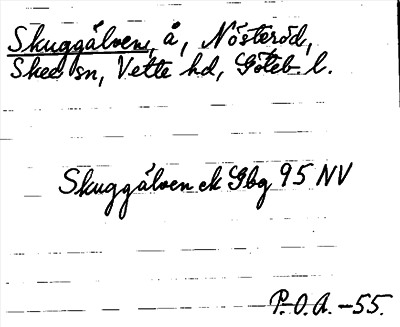 Skuggälven, å, Nösteröd,
Skee sn, Vette hd, Göteb. l.
Skuggälven ek Gbg 95 NV
P.O.A. -55.